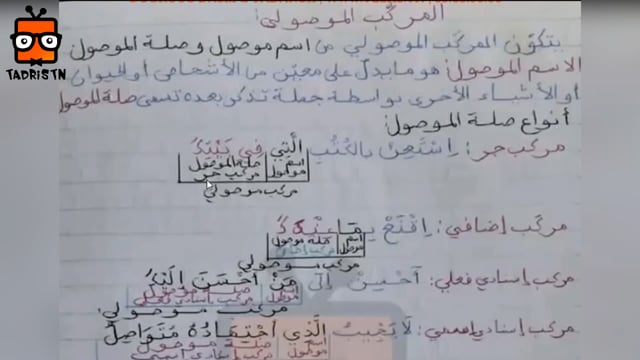 TADRISTN
المركب الموصولي:
يتكوّن المركب الموصولي من اسم موصول وصلة الموصول
الاسم الموصول: هو ما يدلّ على معيّن من الأشخاص أو الحيوان
أو الأشياء الأخرى بواسطة جملة تذكر بعده تسمى صلة الموصول
أنواع صلة الموصول:
مركب جر: اِسْتَعِنْ بِالكُتُبِ الَّتِي فِي بَيْتِكَ
اسم موصول صلة الموصول مركب جر
مركب موصولي
مركب إضافي: اِقْنَعْ بِمَا عِنْدَكَ
اسم موصول صلة موصول مركب إضافي
مركب موصولي
مركب إسنادي فعلي: أَحْسِنْ إِلَى مَنْ أَحْسَنَ إِلَيْكَ
اسم موصول صلة موصول مركب إسنادي فعلي
مركب موصولي
مركب إسنادي اسمي: لَا يَخِيبُ الَّذِي اجْتِهَادُهُ مُتَوَاصِلٌ
اسم موصول صلة موصول مركب إسنادي اسمي